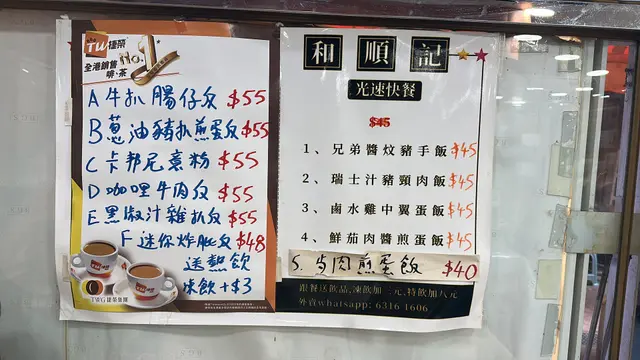 TW 捷榮
全港銷售 No.1
啡、茶
A 牛扒腸仔反 $55
B 蔥油豬扒煎蛋反 $55
C 卡邦尼意粉 $55
D 咖哩牛肉反 $55
E 黑椒汁雞扒反 $55
F 迷你炸肶反 $48
送熱飲
凍飲+$3
TWG 捷榮集團
和順記
光速快餐
$45
1、兄弟醬炆豬手飯 $45
2、瑞士汁豬頸肉飯 $45
3、鹵水雞中翼蛋飯 $45
4、鮮茄肉醬煎蛋飯 $45
5. 免肉煎蛋飯 $40
跟餐送飲品,凍飲加三元,特飲加八元
外賣whatsapp: 6316 1606